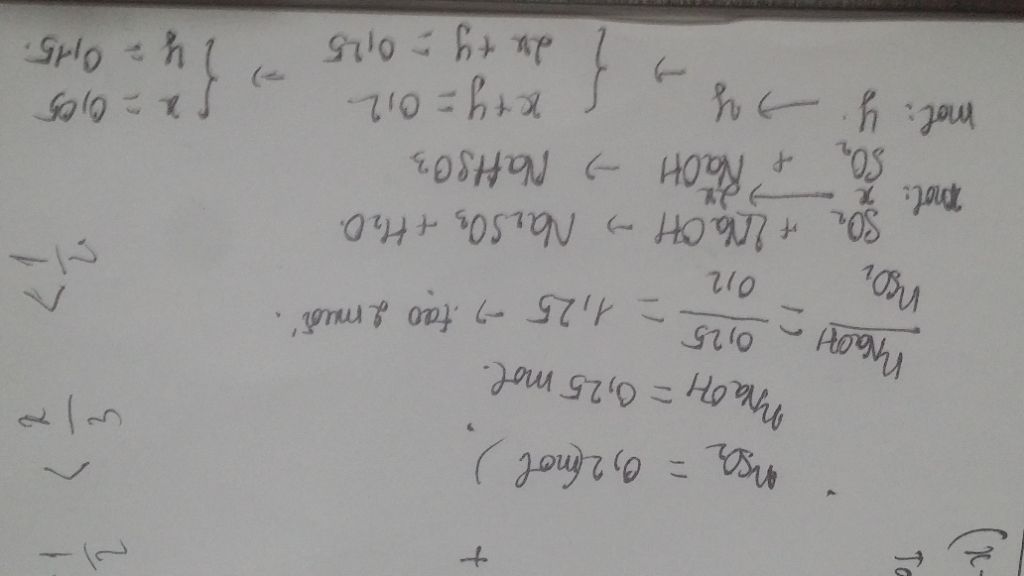 nSO₂ = 0,2 (mol)
nNaOH = 0,25 mol.
nNaOH / nSO₂ = 0,25 / 0,2 = 1,25 → tạo 2 muối.
SO₂ + 2NaOH → Na₂SO₃ + H₂O
mol: x → 2x
SO₂ + NaOH → NaHSO₃
mol: y → y
→ { x + y = 0,2 → { x = 0,05
{ 2x + y = 0,25 { y = 0,15.